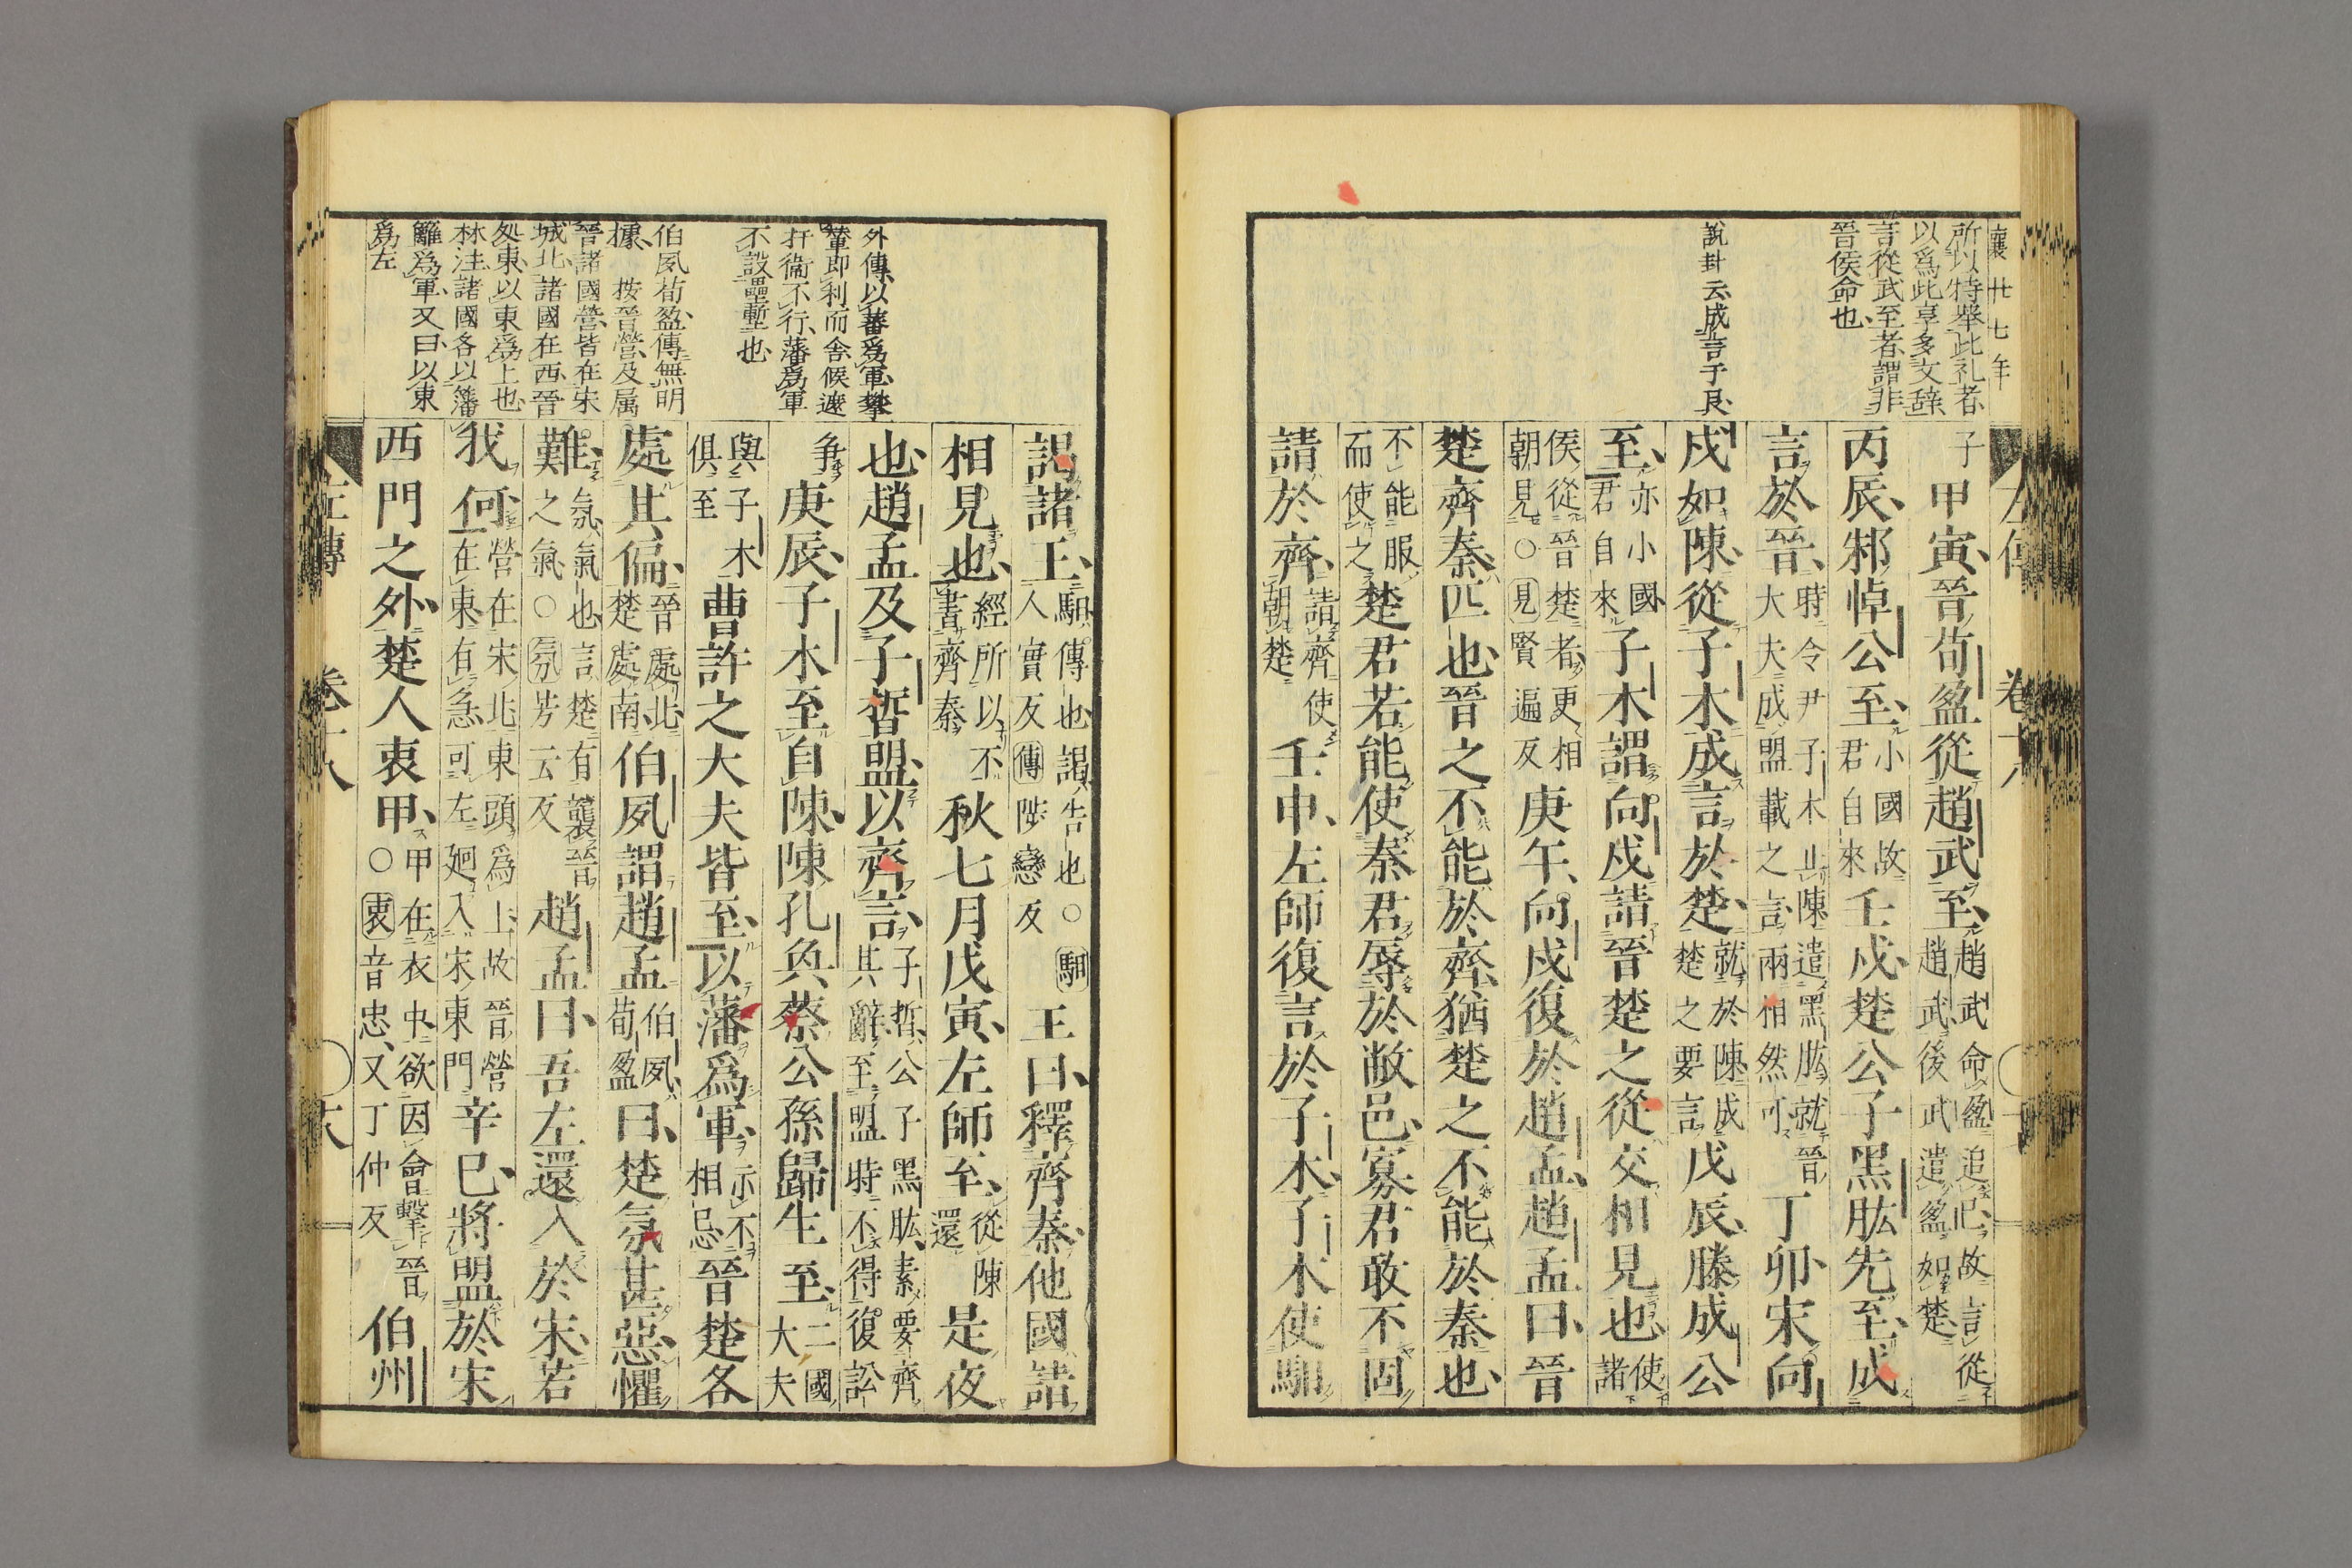 襄廿七年
所以特舉此礼者
以爲此享多文辞
言從武至者謂非
晉侯命也
說卦云成言乎艮
子甲寅晉荀盈從趙武至趙武命盈追已故言從趙武後武遣盈如楚
丙辰邾悼公至小國故君自來壬戌楚公子黑肱先至成
言於晉時令尹子木止陳遣黑肱就晉大夫成盟載之言兩相然可丁卯宋向
戌如陳從子木成言於楚就於陳成楚之要言戊辰滕成公
至亦小國君自來子木謂向戌請晉楚之從交相見也使諸
侯從晉楚者更相朝見○見賢遍反庚午向戌復於趙孟趙孟曰晉
楚齊秦匹也晉之不能於齊猶楚之不能於秦也
不能服而使之楚君若能使秦君辱於敝邑寡君敢不固
請於齊請齊使朝楚壬申左師復言於子木子木使馹
左傳 卷十八
外傳以蕃爲軍攀
輦即利而舍候遮
扞衞不行藩爲軍
不設壘塹也
伯夙荀盈傳無明
據 按晉營及属
晉諸國營皆在宋
城北諸國在西晉
処東以東爲上也
林注諸國各以藩
籬爲軍又曰以東
爲左
謁諸王馹傳也謁告也○馹人實反傳陟戀反王曰釋齊秦他國請
相見也經所以不書齊秦秋七月戊寅左師至從陳還是夜
也趙孟及子晳盟以齊言子晳公子黑肱素要齊其辭至盟時不得復訟
爭庚辰子木至自陳陳孔奐蔡公孫歸生至二國大夫
與子木俱至曹許之大夫皆至以藩爲軍示不相忌晉楚各
處其偏晉處北楚處南伯夙謂趙孟伯夙荀盈曰楚氛甚惡懼
難氛氣也言楚有襲晉之氣○氛芳云反趙孟曰吾左還入於宋若
我何營在宋北東頭爲上故晉營在東有急可左廻入宋東門辛巳將盟於宋
西門之外楚人衷甲甲在衣中欲因會擊晉○衷音忠又丁仲反伯州
左傳 卷十八